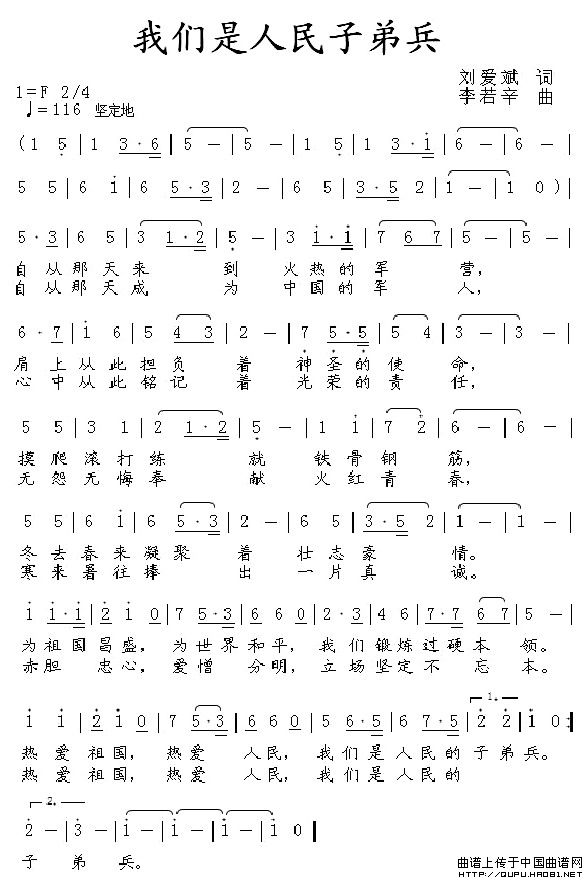 我们是人民子弟兵
刘爱斌 词
1=F 2/4
李若辛 曲
♩=116 坚定地
(1 5 | 1 3·6 | 5 - | 5 - | 1 5 | 1 3·i | 6 - | 6 - |
5 5 | 6 i | 6 5·3 | 2 - | 6 5 | 3·5 2 | 1 - | 1 0 ) |
5·3 | 6 5 | 3 1·2 | 5 - | 3 i·i | 7 6 7 | 5 - |
自从那天来 到 火热的军 营,
自从那天成 为 中国的军 人,
6·7 | i 6 | 5 4 3 | 2 - | 7 5·5 | 5 4 | 3 - |
肩上从此担负 着 神圣的使 命,
心中从此铭记 着 光荣的责 任,
5 5 | 3 1 | 2 1·2 | 5 - | 1 i | 7 2 | 6 - | 6 - |
摸爬滚打练 就 铁骨钢 筋,
无怨无悔奉 献 火红青 春,
5 5 | 6 i | 6 5·3 | 2 - | 6 5 | 3·5 2 | 1 - | 1 - |
冬去春来凝聚 着 壮志豪 情。
寒来暑往捧 出 一片真 诚。
i i·i | 2 i 0 | 7 5·3 | 6 6 0 | 2·3 | 4 6 | 7·7 6 7 | 5 - |
为祖国昌盛, 为世界和平, 我们锻炼过硬本 领。
赤胆 忠心, 爱憎 分明, 立场坚定不 忘 本。
i i | 2 i 0 | 7 5·3 | 6 6 0 | 5 6·5 | 6 7·5 | 2 2 | i 0 :|
1.
热爱祖国, 热爱 人民, 我们是人民的子弟兵。
热爱祖国, 热爱 人民, 我们是人民的
2.
2 - | 3 - | i - | i - | i - | i 0 |
子 弟 兵。
曲谱上传于中国曲谱网
HTTP://QUPU.HAO81.NET